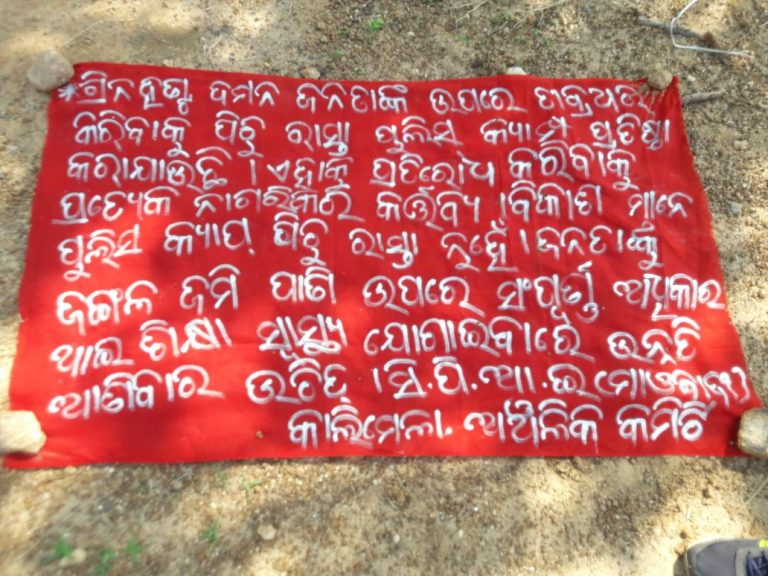 *ଗ୍ରିନହଣ୍ଟ ଦମନ ଜନତାଙ୍କ ଉପରେ
କରିବାକୁ ପିଚୁ ରାସ୍ତା ପୁଲିସ କ୍ୟାମ୍ପ ପ୍ରତିଷ୍ଠା
କରାଯାଉଛି । ଏହାକୁ ପ୍ରତିରୋଧ କରିବାକୁ
ପ୍ରତ୍ୟେକ ନାଗରିକର କର୍ତ୍ତବ୍ୟ । ବିକାଶ ମାନେ
ପୁଲିସ କ୍ୟାପ୍ ପିଚୁ ରାସ୍ତା ନୁହେଁ । ଜନତାଙ୍କୁ
ଜଙ୍ଗଲ ଜମି ପାଣି ଉପରେ ସଂପୂର୍ଣ୍ଣ ଅଧିକାର
ଥାଇ ଶିକ୍ଷା ସ୍ୱାସ୍ଥ୍ୟ ଯୋଗାଇବାରେ ଉନ୍ନତି
ଆଣିବାର ଉଚିତ୍ । ସି.ପି.ଆ.ଇ (ମାଓବାଦୀ)
କାଲିମେଳା. ଆଞ୍ଚଳିକ କମିଟି